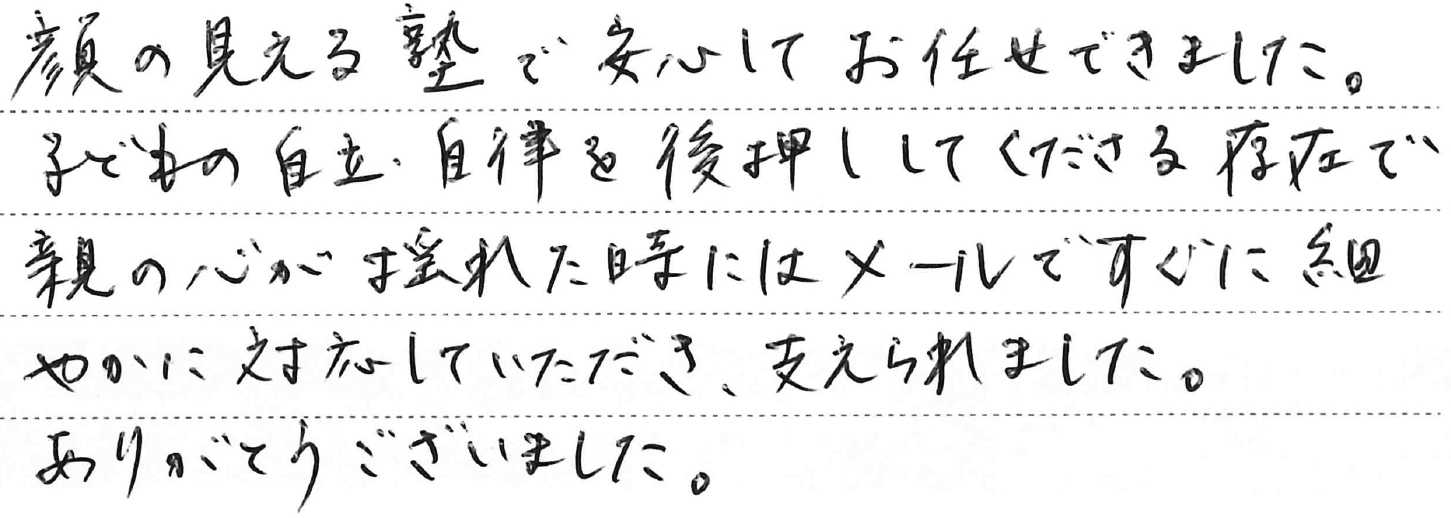 顔の見える塾で安心してお任せできました。
子どもの自立・自律を後押ししてくださる存在で
親の心が揺れた時にはメールですぐに細
やかに対応していただき、支えられました。
ありがとうございました。